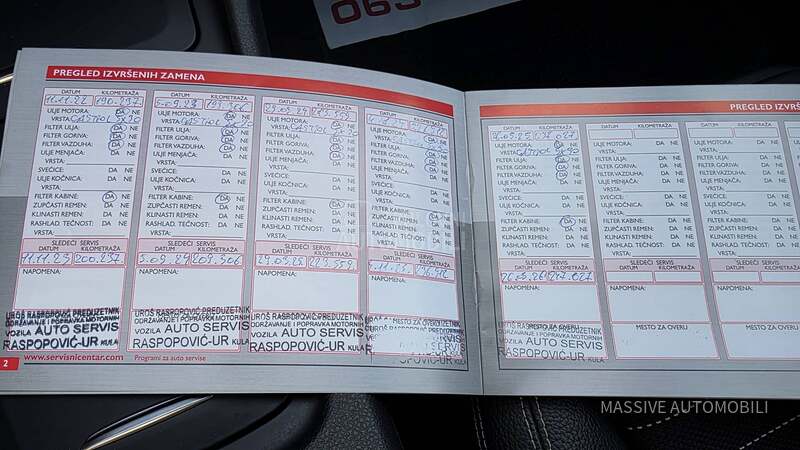 065
PREGLED IZVRŠENIH ZAMENA
DATUM KILOMETRAŽA
11.11.22 190.237
ULJE MOTORA: DA NE
VRSTA: CASTROL 5x30
FILTER ULJA: DA NE
FILTER GORIVA: DA NE
FILTER VAZDUHA: DA NE
ULJE MENJAČA: DA NE
VRSTA:
SVEĆICE: DA NE
ULJE KOČNICA: DA NE
VRSTA:
FILTER KABINE: DA NE
ZUPČASTI REMEN: DA NE
KLINASTI REMEN: DA NE
RASHLAD. TEČNOST: DA NE
VRSTA:
SLEDEĆI SERVIS
DATUM KILOMETRAŽA
11.11.23 200.237
NAPOMENA:
UROŠ RASPOPOVIĆ PREDUZETNIK
ODRŽAVANJE I POPRAVKA MOTORNIH
VOZILA AUTO SERVIS
RASPOPOVIĆ-UR KULA
DATUM KILOMETRAŽA
5.09.23
ULJE MOTORA: DA NE
VRSTA:
FILTER ULJA: DA NE
FILTER GORIVA: DA NE
FILTER VAZDUHA: DA NE
ULJE MENJAČA: DA NE
VRSTA:
SVEĆICE: DA NE
ULJE KOČNICA: DA NE
VRSTA:
FILTER KABINE: DA NE
ZUPČASTI REMEN: DA NE
KLINASTI REMEN: DA NE
RASHLAD. TEČNOST: DA NE
VRSTA:
SLEDEĆI SERVIS
DATUM KILOMETRAŽA
5.09.24 209.306
NAPOMENA:
UROŠ RASPOPOVIĆ PREDUZETNIK
ODRŽAVANJE I POPRAVKA MOTORNIH
VOZILA AUTO SERVIS
RASPOPOVIĆ-UR KULA
DATUM KILOMETRAŽA
ULJE MOTORA: DA NE
VRSTA: CASTROL
FILTER ULJA: DA NE
FILTER GORIVA: DA NE
FILTER VAZDUHA: DA NE
ULJE MENJAČA: DA NE
VRSTA:
SVEĆICE: DA NE
ULJE KOČNICA: DA NE
VRSTA:
FILTER KABINE: DA NE
ZUPČASTI REMEN: DA NE
KLINASTI REMEN: DA NE
RASHLAD. TEČNOST: DA NE
VRSTA:
SLEDEĆI SERVIS
DATUM KILOMETRAŽA
223.559
NAPOMENA:
UROŠ RASPOPOVIĆ PREDUZETNIK
ODRŽAVANJE I POPRAVKA MOTORNIH
VOZILA AUTO SERVIS
RASPOPOVIĆ-UR KULA
DATUM KILOMETRAŽA
ULJE MOTORA: DA NE
VRSTA:
FILTER ULJA: DA NE
FILTER GORIVA: DA NE
FILTER VAZDUHA: DA NE
ULJE MENJAČA: DA NE
VRSTA:
SVEĆICE: DA NE
ULJE KOČNICA: DA NE
VRSTA:
FILTER KABINE: DA NE
ZUPČASTI REMEN: DA NE
KLINASTI REMEN: DA NE
RASHLAD. TEČNOST: DA NE
VRSTA:
SLEDEĆI SERVIS
DATUM KILOMETRAŽA
NAPOMENA:
MESTO ZA OVERU
2
www.servisnicentar.com Programi za auto servise
PREGLED IZVRŠ
DATUM KILOMETRAŽA
237.027
ULJE MOTORA: DA NE
VRSTA: CASTROL
FILTER ULJA: DA NE
FILTER GORIVA: DA NE
FILTER VAZDUHA: DA NE
ULJE MENJAČA: DA NE
VRSTA:
SVEĆICE: DA NE
ULJE KOČNICA: DA NE
VRSTA:
FILTER KABINE: DA NE
ZUPČASTI REMEN: DA NE
KLINASTI REMEN: DA NE
RASHLAD. TEČNOST: DA NE
VRSTA:
SLEDEĆI SERVIS
DATUM KILOMETRAŽA
247.027
NAPOMENA:
UROŠ RASPOPOVIĆ PREDUZETNIK
ODRŽAVANJE I POPRAVKA MOTORNIH
VOZILA AUTO SERVIS
RASPOPOVIĆ-UR KULA
DATUM KILOMETRAŽA
ULJE MOTORA: DA NE
VRSTA:
FILTER ULJA: DA NE
FILTER GORIVA: DA NE
FILTER VAZDUHA: DA NE
ULJE MENJAČA: DA NE
VRSTA:
SVEĆICE: DA NE
ULJE KOČNICA: DA NE
VRSTA:
FILTER KABINE: DA NE
ZUPČASTI REMEN: DA NE
KLINASTI REMEN: DA NE
RASHLAD. TEČNOST: DA NE
VRSTA:
SLEDEĆI SERVIS
DATUM KILOMETRAŽA
NAPOMENA:
MESTO ZA OVERU
DATUM KILOMETRAŽA
ULJE MOTORA: DA NE
VRSTA:
FILTER ULJA: DA NE
FILTER GORIVA: DA NE
FILTER VAZDUHA: DA NE
ULJE MENJAČA: DA NE
VRSTA:
SVEĆICE: DA NE
ULJE KOČNICA: DA NE
VRSTA:
FILTER KABINE: DA NE
ZUPČASTI REMEN: DA NE
KLINASTI REMEN: DA NE
RASHLAD. TEČNOST: DA NE
VRSTA:
SLEDEĆI SERVIS
DATUM KILOMETRAŽA
NAPOMENA:
MESTO ZA OVERU
MASSIVE AUTOMOBILI